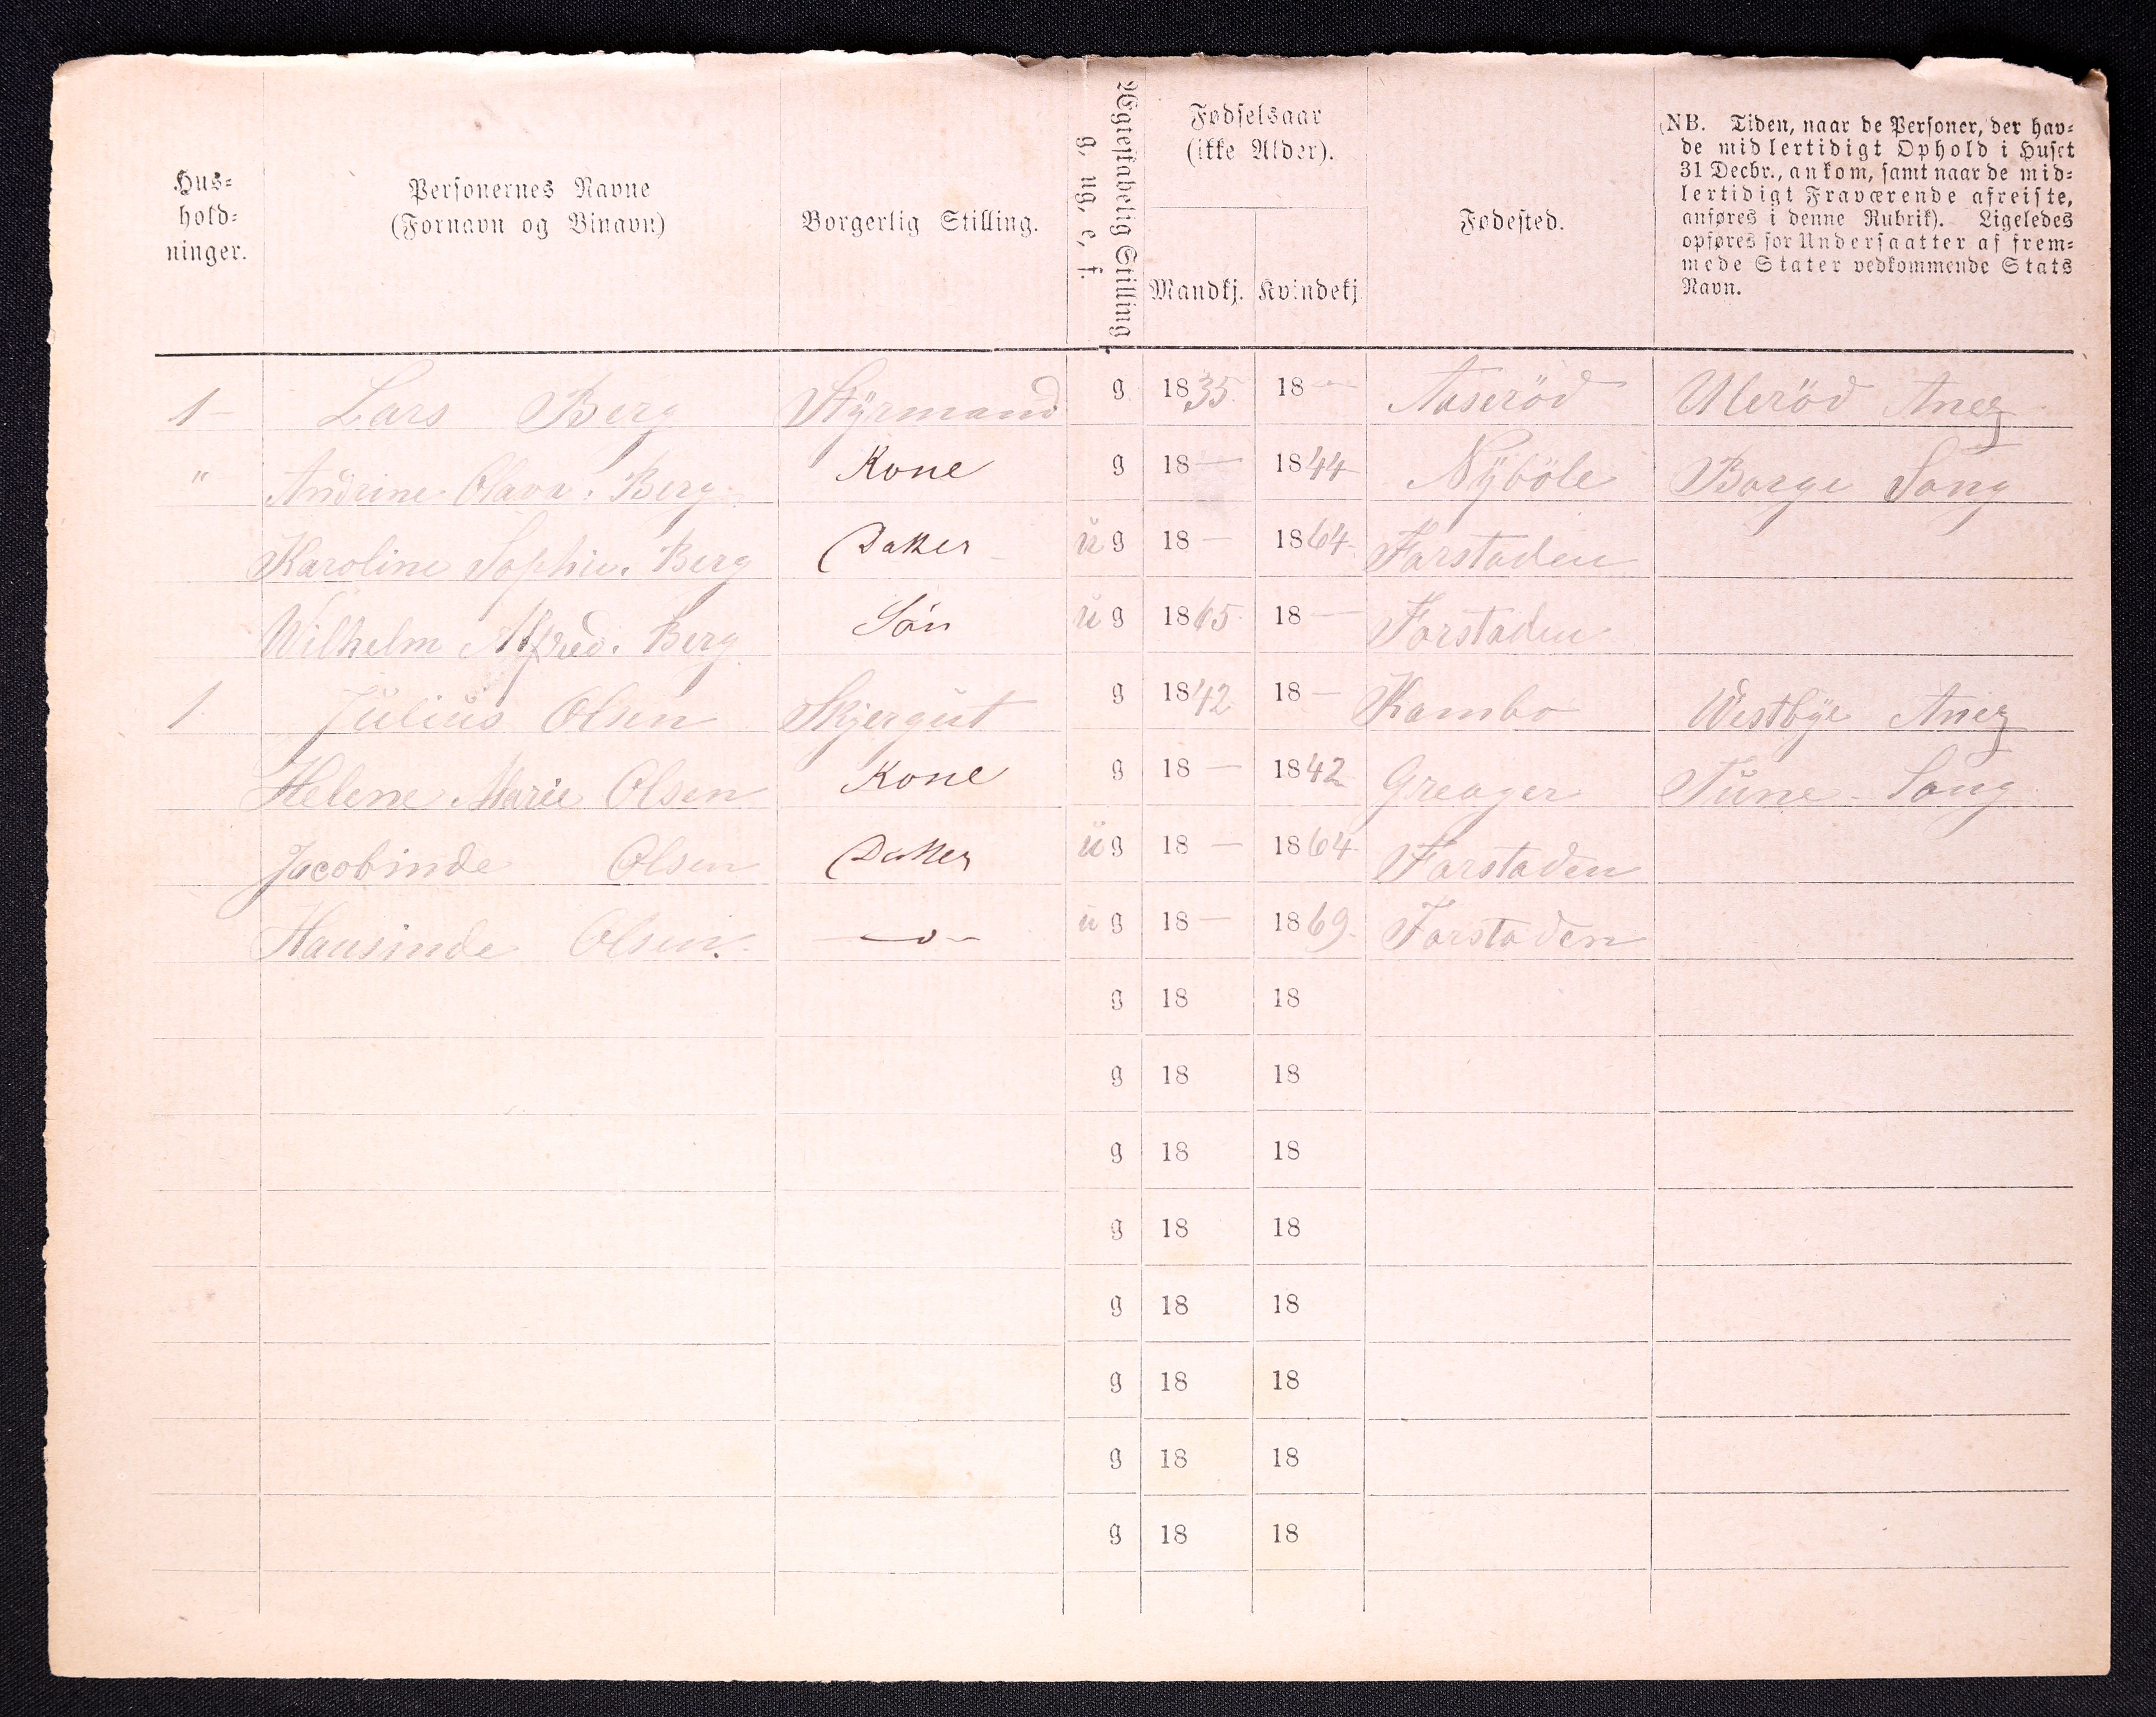 Hus-
hold-
ninger.
Personernes Navne
(Fornavn og Binavn)
Borgerlig Stilling.
Ægteskabelig Stilling
g, ug, e, f.
Fødselsaar
(ikke Alder).
Mandkj. Kvindekj
Fødested.
(NB. Tiden, naar de Personer, der hav-
de midlertidigt Ophold i Huset
31 Decbr., ankom, samt naar de mid-
lertidigt Fraværende afreiste,
anføres i denne Rubrik). Ligeledes
opføres for Undersaatter af frem-
mede Stater vedkommende Stats
Navn.
1 - Lars Berg Styrmand g 1835 18 - Aaseröd Uleröd Anex
" Andrine Olava. Berg. Kone g 18 - 1844 Nÿböle Borge Song
Karoline Sophie. Berg Datter ug 18 - 1864 Forstaden
Wilhelm Alfred. Berg Sön ug 1865 18 - Forstaden
1 Julius Olsen Skjergut g 1842 18 - Kambo Westbÿe Anex
Helene Marie Olsen Kone g 18 - 1842 Greager Tune - Song
Jacobinde Olsen Datter ug 18 - 1864 Forstaden
Hansinde Olsen. -o- ug 18 - 1869. Forstaden
g 18 18
g 18 18
g 18 18
g 18 18
g 18 18
g 18 18
g 18 18
g 18 18